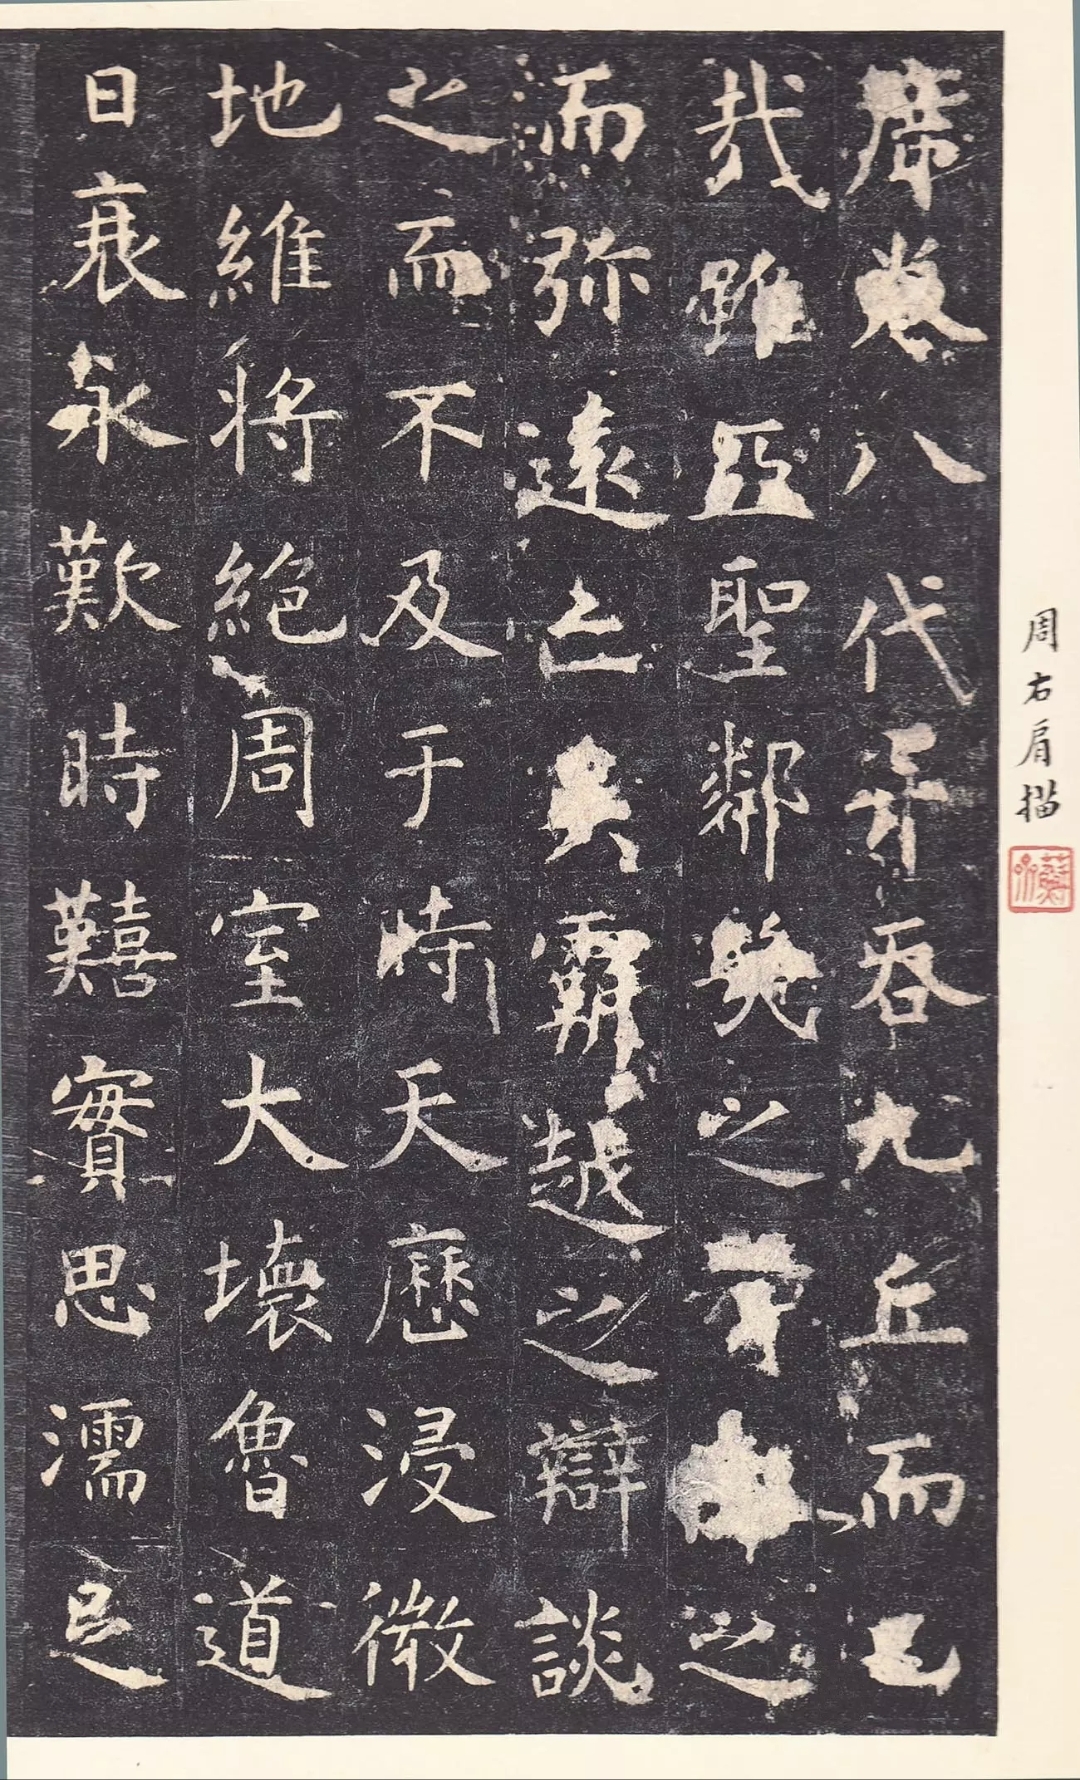 席卷八代并吞九丘而已
哉雖亞聖鄰幾之智仰之
而弥遠亡吳霸越之辯談
之而不及于時天歷浸微
地維將絕周室大壞魯道
日衰永歎時囏實思濡足
周右肩描